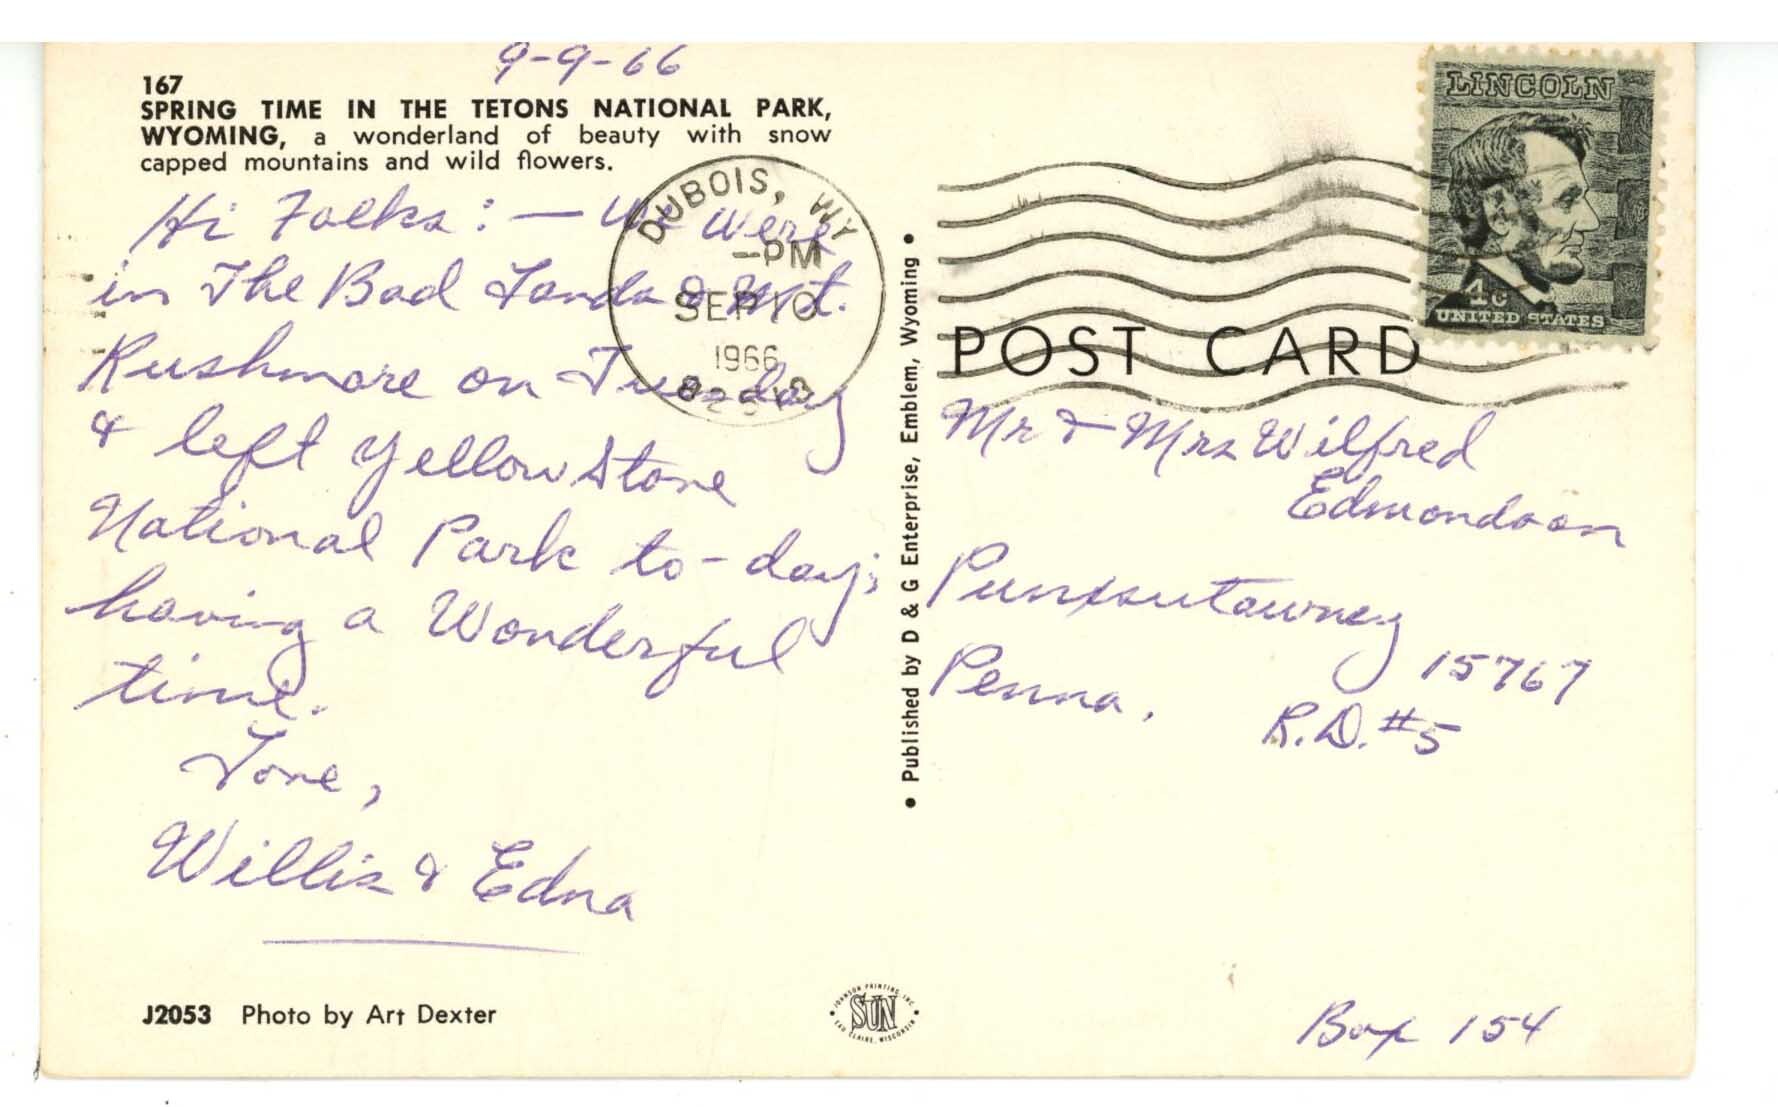 9-9-66
167
SPRING TIME IN THE TETONS NATIONAL PARK,
WYOMING, a wonderland of beauty with snow
capped mountains and wild flowers.
Hi Folks: — We were
in The Bad Lands & Mt.
Rushmore on Tuesday
& left YellowStone
National Park to-day;
having a Wonderful
time.
Love,
Willis & Edna
J2053 Photo by Art Dexter
DUBOIS, WY
-PM
SEP 10
1966
82513
• Published by D & G Enterprise, Emblem, Wyoming •
JOHNSON PRINTING, INC.
SUN
EAU CLAIRE, WISCONSIN
LINCOLN
4c
UNITED STATES
POST CARD
Mr & Mrs Wilfred
Edmondson
Punxsutawney
Penna, 15767
R.D. #5
Box 154